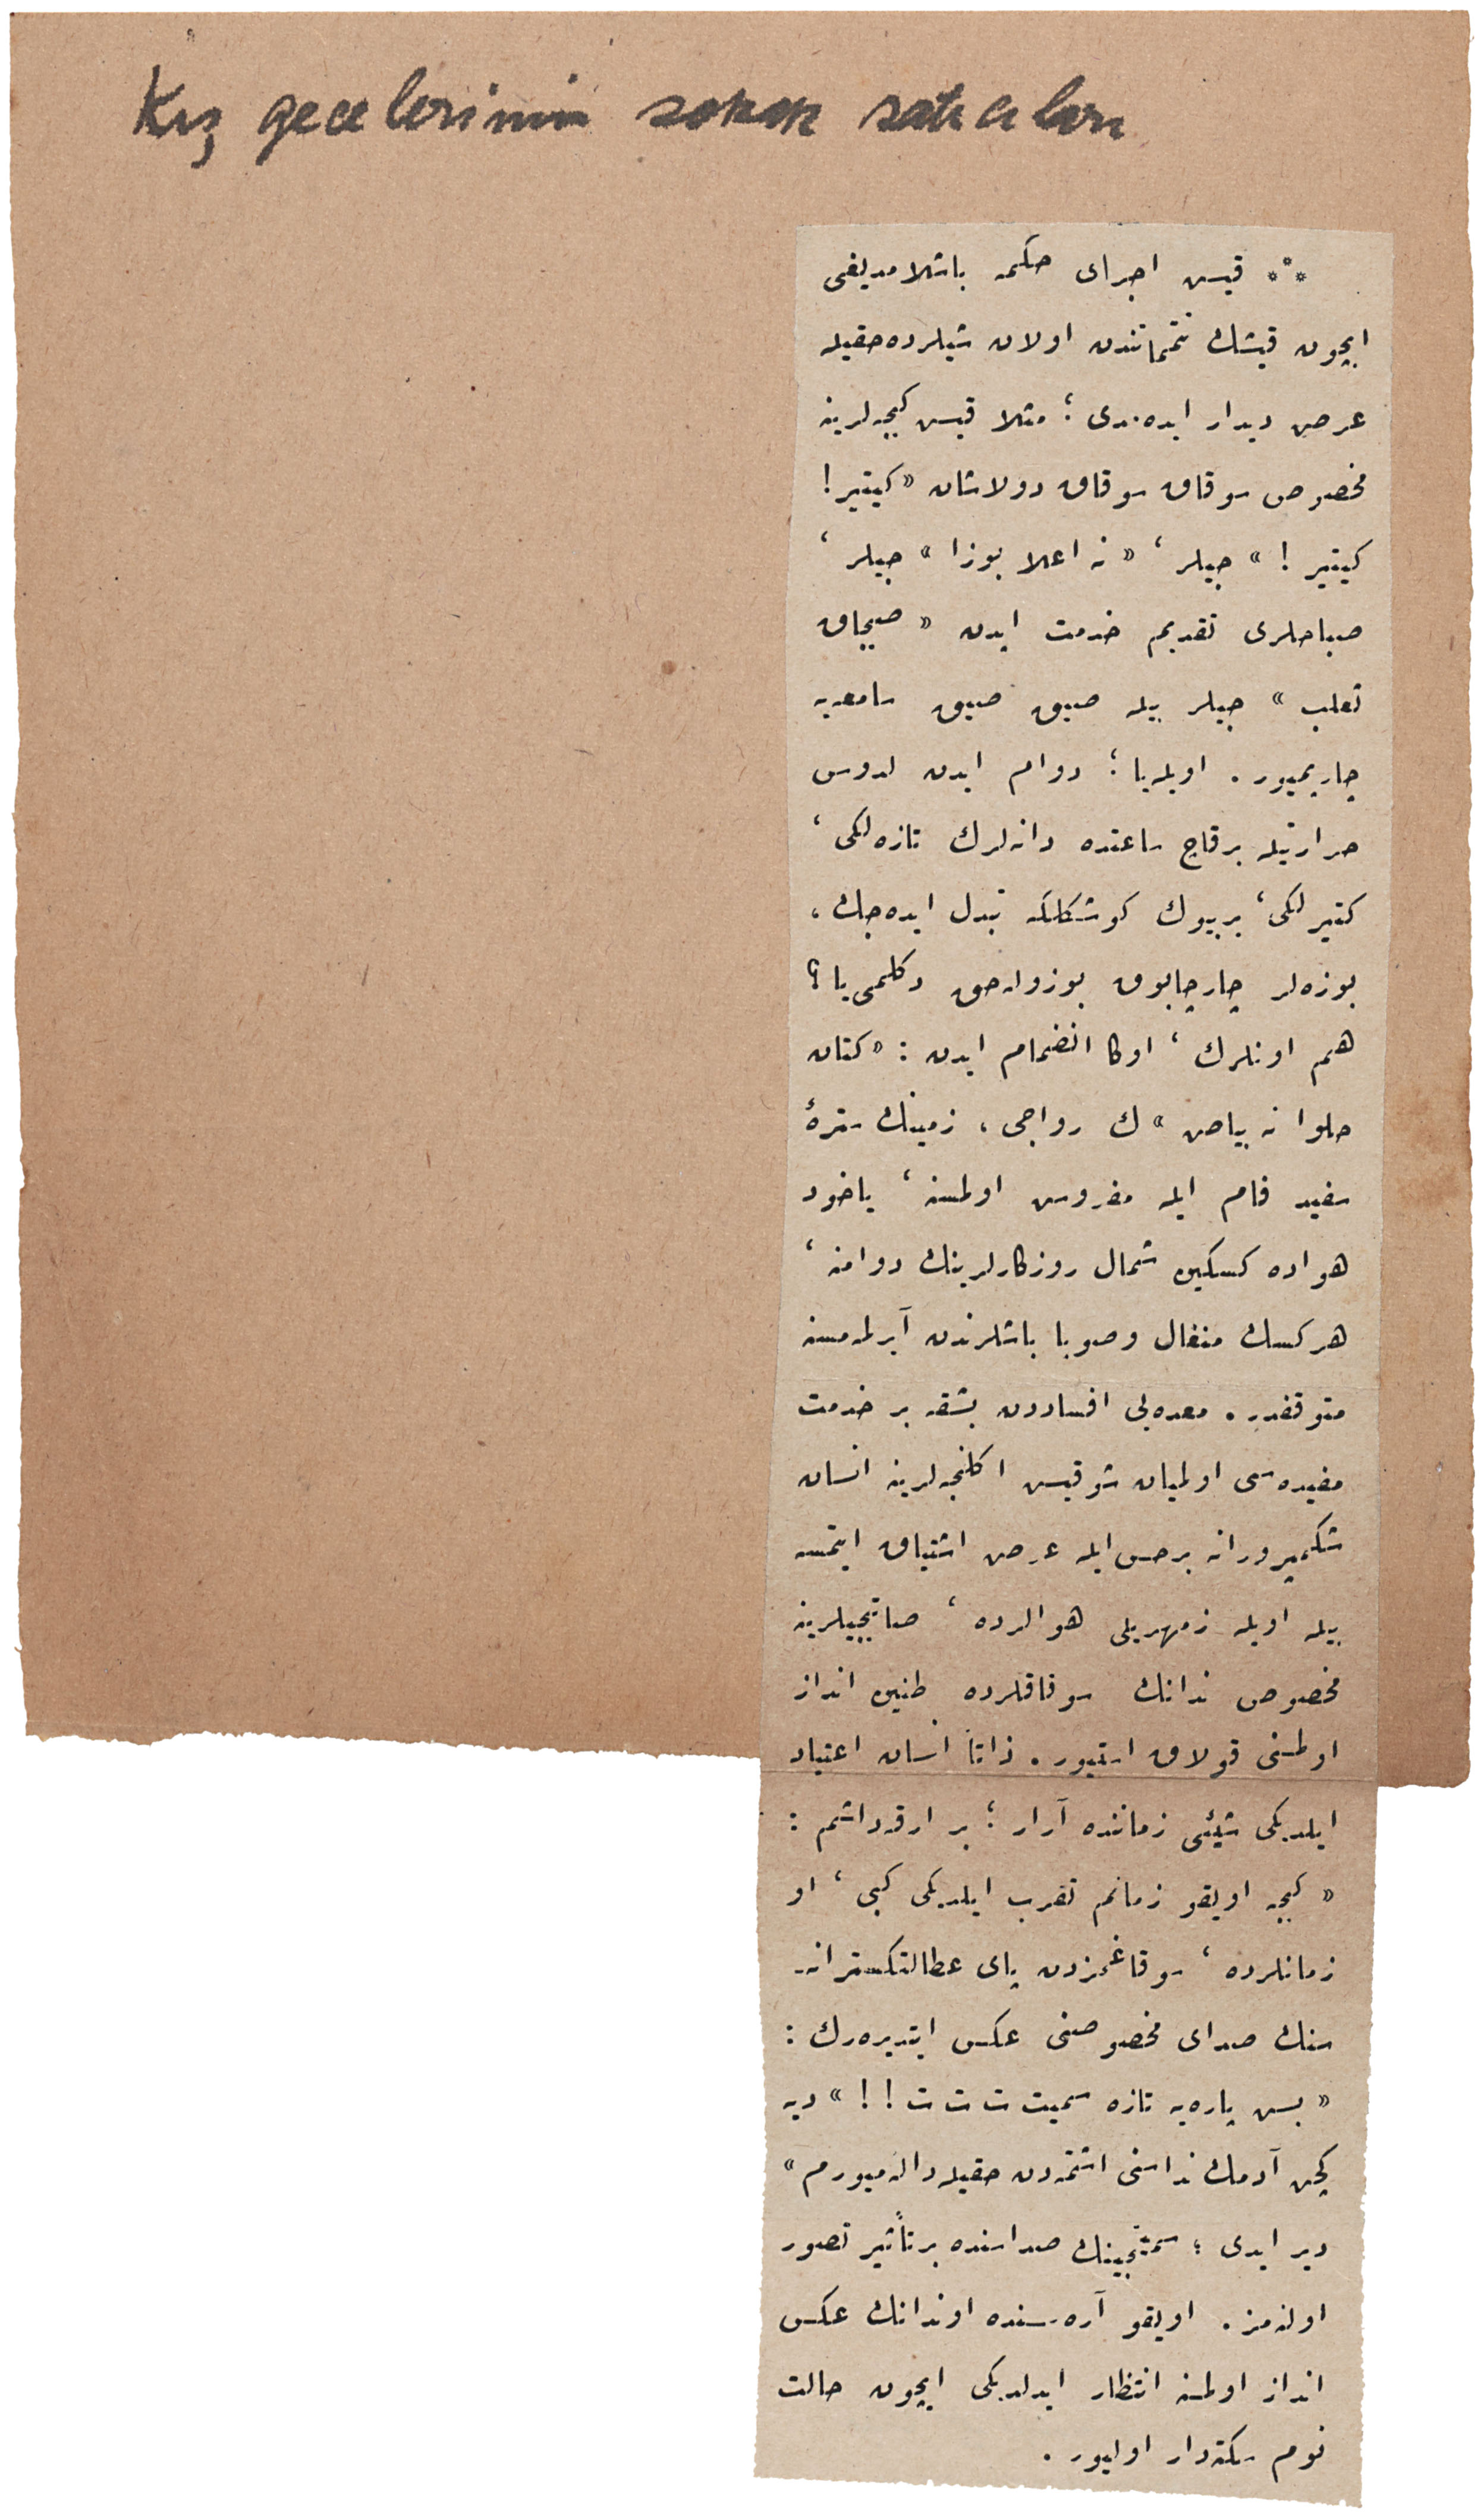 Kış gecelerinin sokak satıcıları
⁂ قیش اجرای حکمه باشلامدیغی
ایچون قیشك متمماتندن اولان شیلرده حقیله
عرض دیدار ایده‌مدی ؛ مثلا قیش کیجه‌لرینه
مخصوص سوقاق سوقاق دولاشان «کیتیر!
کیتیر ! » جیلر ، « نه اعلا بوزا » جیلر ،
صباحلری تقدیم خدمت ایدن « صیجاق
ثعلب » جیلر بیله صیق صیق سامعه‌یه
چارپمیور . اویله‌یا ؛ دوام ایدن لدوس
حرارتیله برقاچ ساعتده دانه‌لرك تازه‌لکی ،
کتیرلکی ، بربیوك کوشکلکه تبدل ایده‌جك ،
بوزه‌لر چارچابوق بوزوله‌جق دکلمی‌یا ؟
هم اونلرك ، اوکا انضمام ایدن : «کتان
حلوا نه بیاض » ك رواجی ، زمینك سترۀ
سفید فام ایله مفروش اولمسنه ، یاخود
هواده کسکین شمال روزکارلرینك دوامنه ،
هرکسك منغال وصوبا باشلرندن آیرلمه‌مسنه
متوقفدر . معده‌یی افساددن بشقه بر خدمت
مفیده‌سی اولمیان شوقیش اکلنجه‌لرینه انسان
شکمپرورانه برحس ایله عرض اشتیاق ایتمسه
بیله اویله زمهریلی هوالرده ، صاتیجیلرینه
مخصوص ندانك سوقاقلرده طنین انداز
اولمسنی قولاق استیور . ذاتاً انسان اعتیاد
ایلدیکی شیئی زماننده آرار ؛ بر ارقه‌داشم :
« کیجه اویقو زمانم تقرب ایلدیکی کبی ، او
زمانلرده ، سوقاغمزدن پای عطالتکسترانه‌ـ
سنك صدای مخصوصنی عکس ایتدیره‌رك :
« بش پاره‌یه تازه سمیت ت ت ت ! ! » دیه
کچن آدمك نداسنی اشتمه‌دن حقیله دالەمیورم »
دیر ایدی ؛ سمیتجینك صداسنده برتأثیر تصور
اولنه‌مز . اویقو آره‌سنده اوندانك عکس
انداز اولمسنه انتظار ایدلدیکی ایچون حالت
نوم سکته‌دار اولیور .